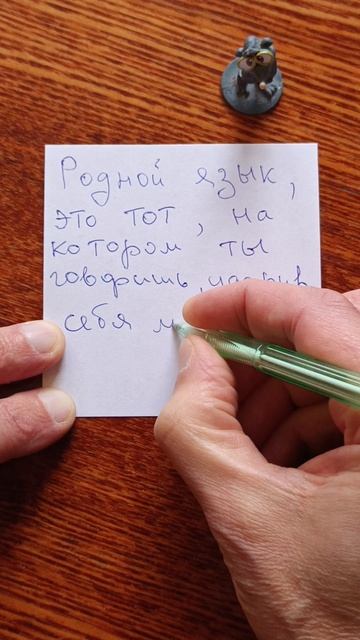 Родной язык,
это тот, на
котором ты
говоришь,
себя м